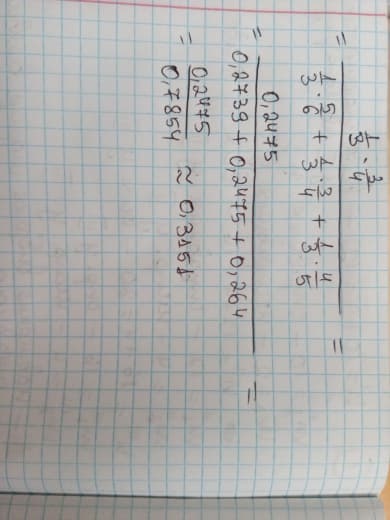 1/3 · 3/4
= ——— =
1/3 · 5/6 + 1/3 · 3/4 + 1/3 · 4/5
0,2475
= ——— =
0,2739 + 0,2475 + 0,264
= 0,2475/0,7854 ≈ 0,3151